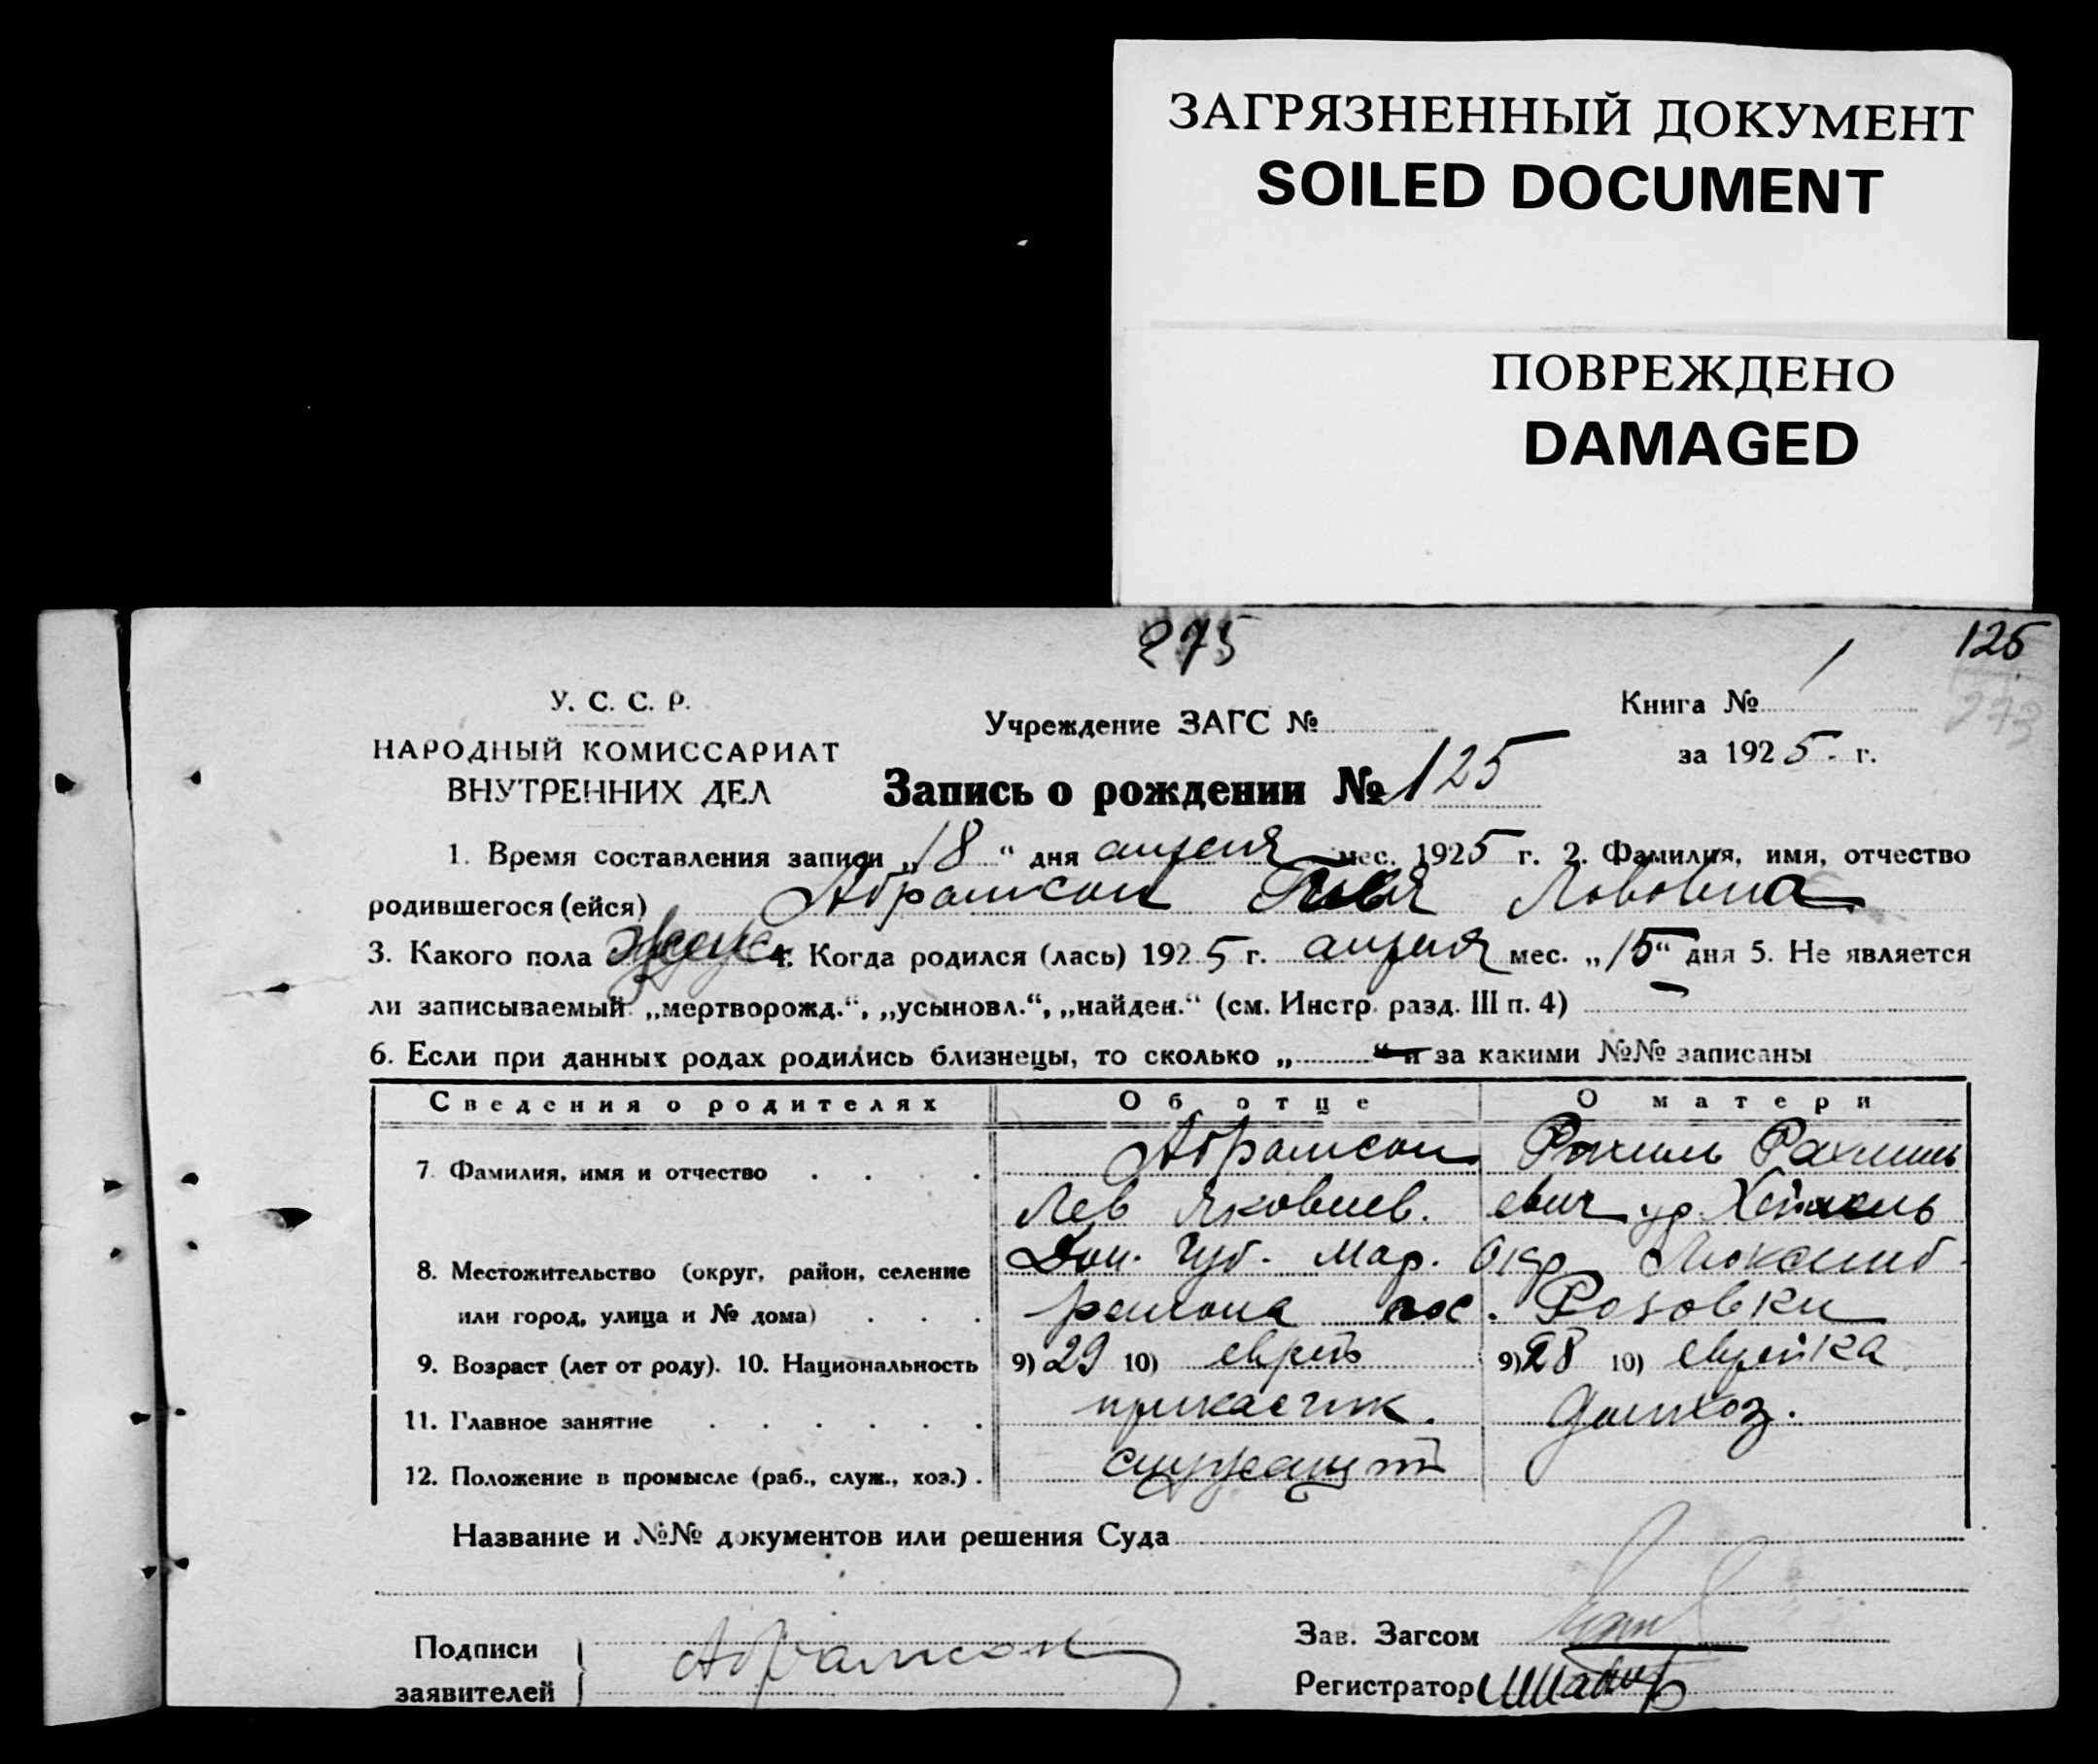 ЗАГРЯЗНЕННЫЙ ДОКУМЕНТ
SOILED DOCUMENT
ПОВРЕЖДЕНО
DAMAGED
275
125
273
У. С. С. Р.
НАРОДНЫЙ КОМИССАРИАТ
ВНУТРЕННИХ ДЕЛ
Учреждение ЗАГС №
Книга № 1
за 1925 г.
Запись о рождении № 125
1. Время составления записи „18“ дня апреля мес. 1925 г. 2. Фамилия, имя, отчество
родившегося (ейся) Абрамсон Львовна
3. Какого пола женск 4. Когда родился (лась) 1925 г. апреля мес. „15“ дня 5. Не является
ли записываемый „мертворожд.“, „усыновл.“, „найден.“ (см. Инстр. разд. III п. 4) —
6. Если при данных родах родились близнецы, то сколько „ “ и за какими №№ записаны
Сведения о родителях Об отце О матери
7. Фамилия, имя и отчество Абрамсон Рахиль Рахмиль
Лев Яковлев. евич ур.
8. Местожительство (округ, район, селение Дон. Губ. Мар. Окр Люксемб.
или город, улица и № дома) района пос. Розовки
9. Возраст (лет от роду). 10. Национальность 9) 29 10) еврей 9) 28 10) еврейка
11. Главное занятие приказчик. домхоз.
12. Положение в промысле (раб., служ., хоз.) служащий
Название и №№ документов или решения Суда
Подписи
заявителей
Абрамсон
Зав. Загсом
Регистратор